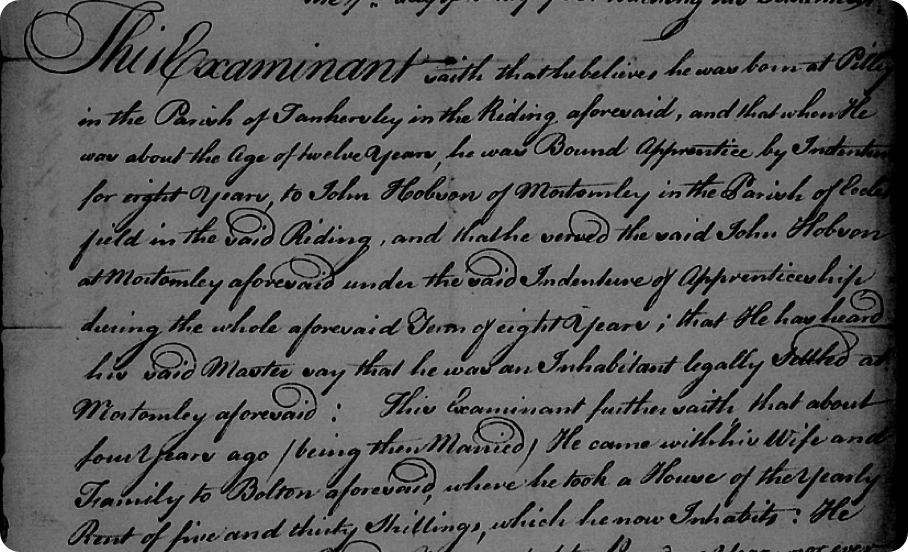 This Examinant saith that he believes he was born at Pilley
in the Parish of Tankersley in the Riding aforesaid, and that when He
was about the Age of twelve Years, he was Bound Apprentice by Indenture
for eight Years, to John Hobson of Mortomley in the Parish of Eccles
field in the said Riding, and that he served the said John Hobson
at Mortomley aforesaid under the said Indenture of Apprenticeship
during the whole aforesaid Term of eight Years; that He has heard
his said Master say that he was an Inhabitant legally Settled at
Mortomley aforesaid : This Examinant further saith, that about
four Years ago (being then Married) He came with his Wife and
Family to Bolton aforesaid, where he took a House of the Yearly
Rent of five and thirty Shillings, which he now Inhabits : He